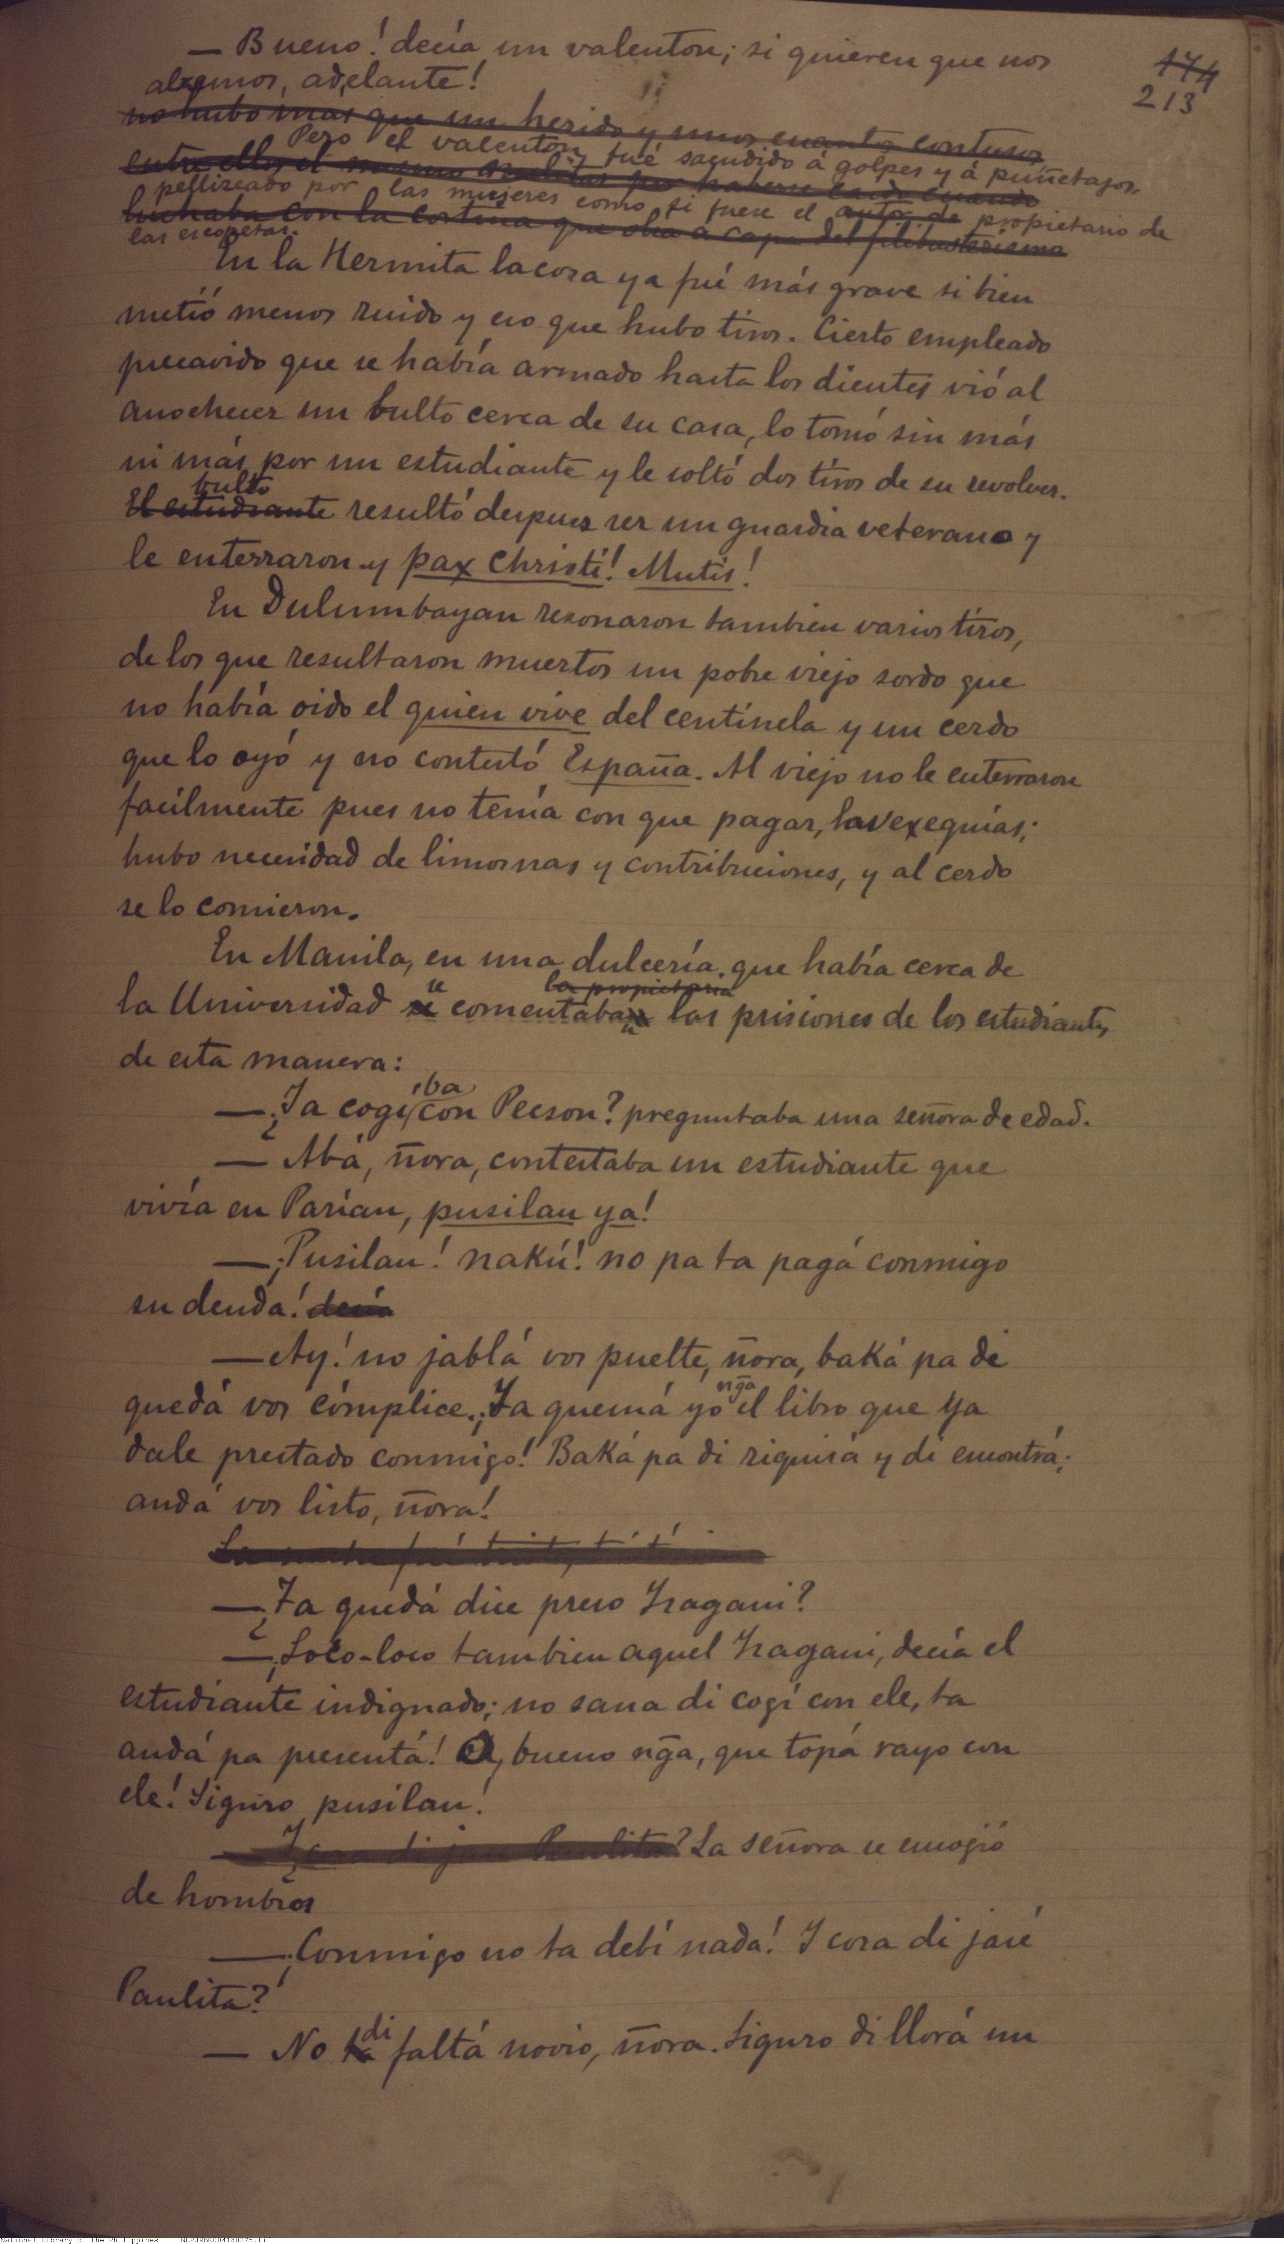 — Bueno! decía un valenton; si quieren que nos
174
213
alzemos, adelante!
no hubo mas que un herido y unos cuantos contusos
Pero el valenton fué sacudido á golpes y á puñetazos,
entre ellos el mismo por haberse caido cuando
pellizcado por las mujeres como si fuese el autor de propietario de
luchaba con la cortina que olia a capa del filibusterismo
las escopetas.
En la Hermita la cosa ya fué más grave si bien
metió menos ruido y eso que hubo tiros. Cierto empleado
precavido que se había armado hasta los dientes vió al
anochecer un bulto cerca de su casa, lo tomó sin más
ni más por un estudiante y le soltó dos tiros de su revolver.
bulto
El estudiante resultó despues ser un guardia veterano y
le enterraron y pax Christi! Mutis!
En Dulumbayan resonaron tambien varios tiros,
de los que resultaron muertos un pobre viejo sordo que
no había oido el quien vive del centinela y un cerdo
que lo oyó y no contestó España. Al viejo no le enterraron
facilmente pues no tenía con que pagar, las exequias;
hubo necesidad de limosnas y contribuciones, y al cerdo
se lo comieron.
En Manila, en una dulcería que había cerca de
se la propietaria
la Universidad se comentaban las prisiones de los estudiantes
de esta manera:
iba
— ¿Ja cogí con Pecson? preguntaba una señora de edad.
— Abá, ñora, contestaba un estudiante que
vivía en Parían, pusilau ya!
— ¡Pusilau! nakú! no pa ta pagá conmigo
su deuda! decía
— Ay! no jablá vos puelte, ñora, baká pa di
ng̃a
quedá vos cómplice. ¡Ja quemá yo el libro que ya
dale prestado conmigo! Baká pa di riquisá y di encontrá;
andá vos listo, ñora!
— ¿Ja quedá dice preso Isagani?
— ¡Loco-loco tambien aquel Isagani, decía el
estudiante indignado; no sana di cogí con ele, ta
andá pa presentá! O, bueno ng̃a, que topá rayo con
ele! Siguro pusilau!
La señora se encogió
de hombros
— ¡Conmigo no ta debí nada! Y cosa di jasé
Paulita?
di
— No ta faltá novio, ñora. Siguro di llorá un